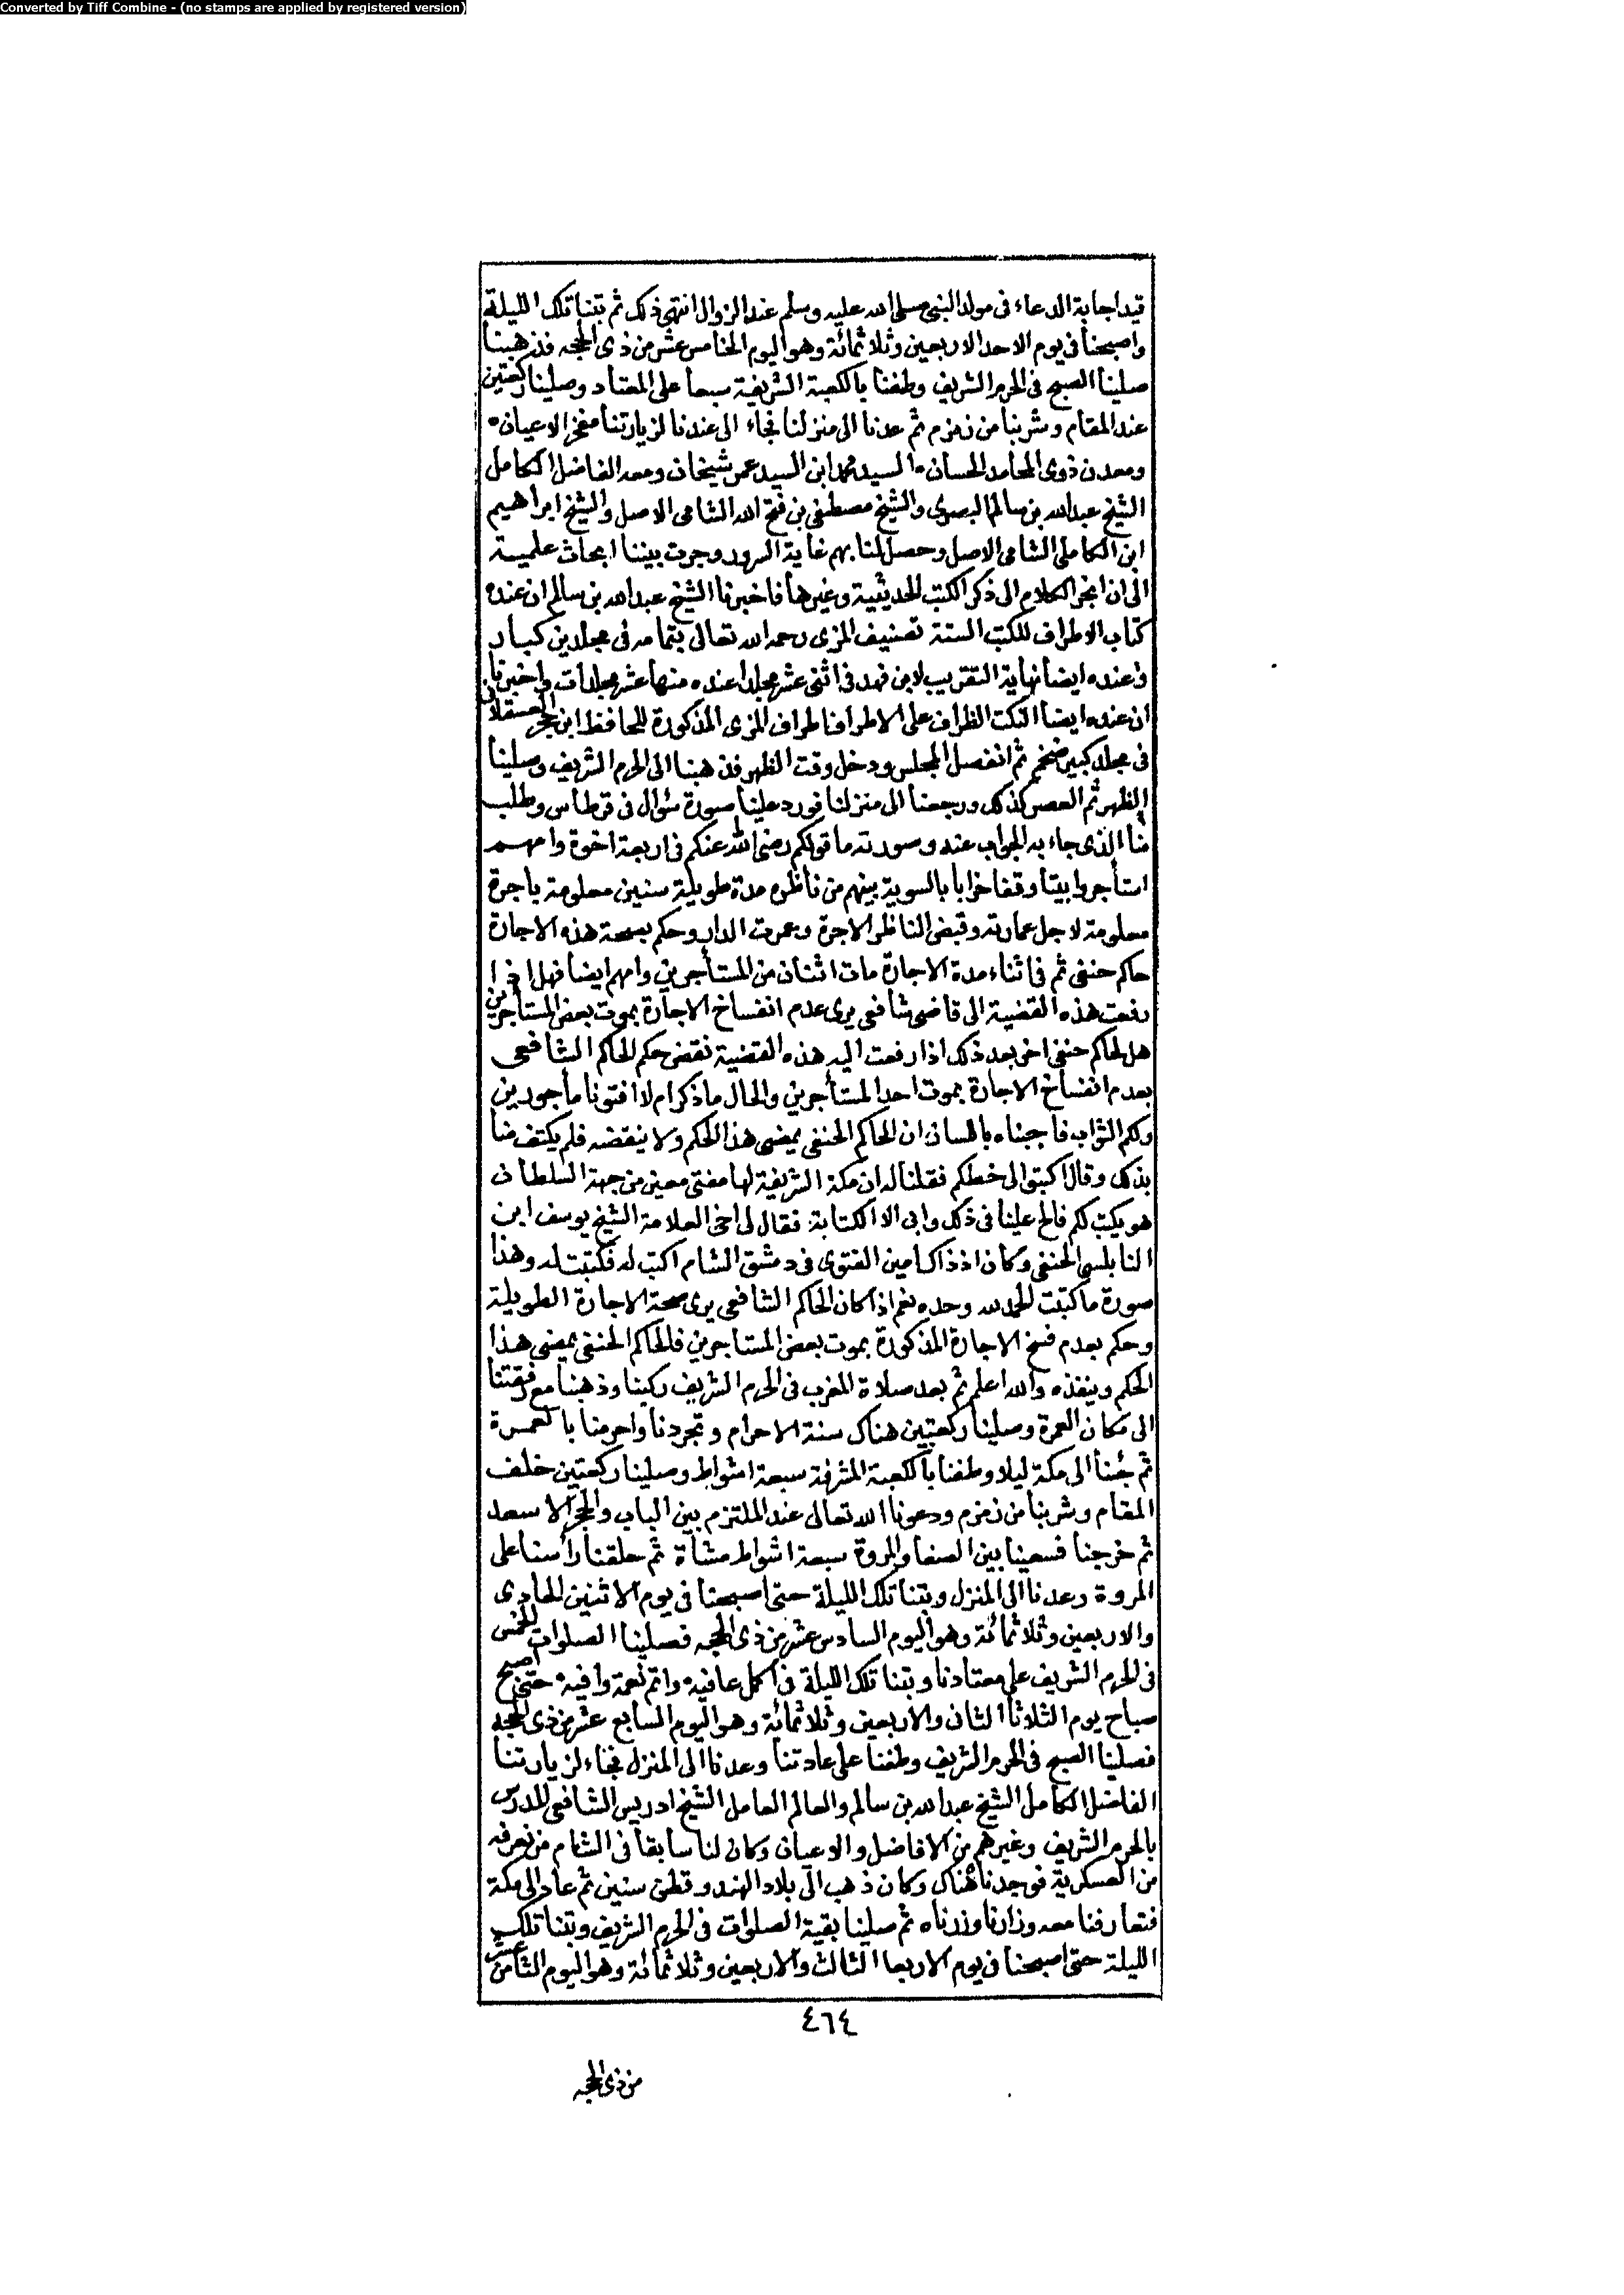 Converted by Tiff Combine - (no stamps are applied by registered version)
قيد اجابة الدعاء فى مولد النبى صلى الله عليه وسلم عند الزوال انتهى ذلك ثم بتنا تلك الليلة
واصبحنا فى يوم الاحد الاربعين وثلاثمائة وهو اليوم الخامس عشر من ذى الحجه فذهبنا
صلينا الصبح فى الحرم الشريف وطفنا بالكعبة الشريفة سبعا على المعتاد وصلينا ركعتين
عند المقام وشربنا من زمزم ثم عدنا الى منزلنا فجاء الى عندنا لزيارتنا مفخر الاعيان
ومعدن ذوى المحامد الحسان السيد محمد ابن السيد عمر شيخان ومعه الفاضل الكامل
الشيخ عبدالله بن سالم البصرى والشيخ مصطفى بن فتح الله الشامى الاصل والشيخ ابراهيم
ابن الكاملى الشامى الاصل وحصل لنا بهم غاية السرور وجرت بيننا ابحاث علمية
الى ان انجر الكلام الى ذكر الكتب الحديثية وغيرها فاخبرنا الشيخ عبدالله بن سالم ان عنده
كتاب الاطراف للكتب الستة تصنيف المزى رحمه الله تعالى بتمامه فى مجلدين كبار
وعنده ايضا نهاية التقريب لابن فهد فى اثنى عشر مجلدا عنده منها عشر مجلدات واخبرنا
ان عنده ايضا النكت الظراف على الاطراف اطراف المزى المذكورة للحافظ ابن حجر العسقلانى
فى مجلد كبير ضخم ثم انفصل المجلس ودخل وقت الظهر فذهبنا الى الحرم الشريف وصلينا
الظهر ثم العصر كذلك ورجعنا الى منزلنا فورد علينا صورة سؤال فى قرطاس وطلب
منا الذى جاء به الجواب عنه وصورته ما قولكم رضى الله عنكم فى اربعة اخوة وامهم
استأجروا بيتا وقفا خرابا بالسوية بينهم من ناظره مدة طويلة سنين معلومة باجرة
معلومة لاجل عمارته وقبض الناظر الاجرة وعمرت الدار وحكم بصحة هذه الاجارة
حاكم حنفى ثم فى اثناء مدة الاجارة مات اثنان من المستأجرين وامهم ايضا فهل اذا
رفعت هذه القضية الى قاضى شافعى يرى عدم انفساخ الاجارة بموت بعض المستأجرين
هل لحاكم حنفى اخر بعد ذلك اذا رفعت اليه هذه القضية نقض حكم الحاكم الشافعى
بعدم انفساخ الاجارة بموت احد المستأجرين والحال ما ذكر ام لا افتونا مأجورين
ولكم الثواب فاجبناه باللسان ان الحاكم الحنفى يمضى هذا الحكم ولا ينقضه فلم يكتف منا
بذلك وقال اكتبوا لى خطكم فقلنا له ان مكة الشريفة لها مفتى معين من جهة السلطان
هو يكتب لكم فالح علينا فى ذلك وابى الا الكتابة فقال لى اخى العلامة الشيخ يوسف ابن
النابلسى الحنفى وكان اذ ذاك امين الفتوى فى دمشق الشام اكتب له فكتبت له وهذا
صورة ما كتبت الحمد لله وحده نعم اذا كان الحاكم الشافعى يرى صحة الاجارة الطويلة
وحكم بعدم فسخ الاجارة المذكورة بموت بعض المستاجرين فالحاكم الحنفى يمضى هذا
الحكم وينفذه والله اعلم ثم بعد صلاة المغرب فى الحرم الشريف ركبنا وذهبنا مع رفقتنا
الى مكان العمرة وصلينا ركعتين هناك سنة الاحرام وتجردنا واحرمنا بالعمرة
ثم جئنا الى مكة ليلا وطفنا بالكعبة المشرفة سبعة اشواط وصلينا ركعتين خلف
المقام وشربنا من زمزم ودعونا الله تعالى عند الملتزم بين الباب والحجر الاسعد
ثم خرجنا فسعينا بين الصفا والمروة سبعة اشواط مشاة ثم حلقنا رأسنا على
المروة وعدنا الى المنزل وبتنا تلك الليلة حتى اصبحنا فى يوم الاثنين الحادى
والاربعين وثلاثمائة وهو اليوم السادس عشر من ذى الحجه فصلينا الصلوات الخمس
فى الحرم الشريف على معتادنا وبتنا تلك الليلة فى اكمل عافيه واتم نعمة وافيه حتى اصبح
صباح يوم الثلاثا الثانى والاربعين وثلاثمائة وهو اليوم السابع عشر من ذى الحجه
فصلينا الصبح فى الحرم الشريف وطفنا على عادتنا وعدنا الى المنزل فجاء لزيارتنا
الفاضل الكامل الشيخ عبدالله بن سالم والعالم العامل الشيخ ادريس الشافعى المدرس
بالحرم الشريف وغيرهم من الافاضل والاعيان وكان لنا سابقا فى الشام من نعرفه
من العسكرية فوجدناه هناك وكان ذهب الى بلاد الهند وقطن سنين ثم عاد الى مكة
فتعارفنا معه وزارنا وزرناه ثم صلينا بقية الصلوات فى الحرم الشريف وبتنا تلك
الليلة حتى اصبحنا فى يوم الاربعا الثالث والاربعين وثلاثمائة وهو اليوم الثامن عشر
٤٦٤
من ذى الحجه